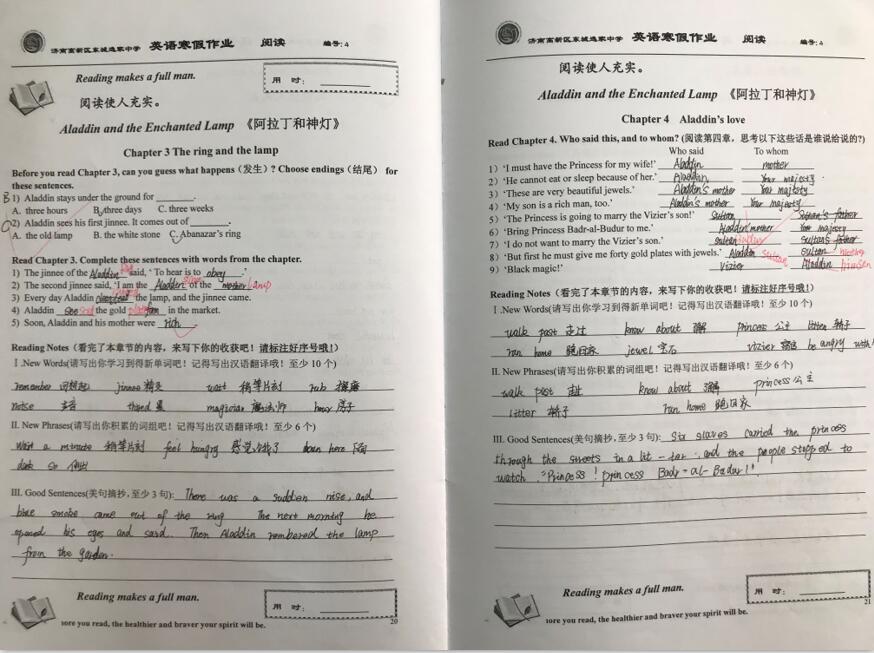 济南高新区东城逸家中学 英语寒假作业 阅读 编号:4
Reading makes a full man.
用 时:
阅读使人充实。
Aladdin and the Enchanted Lamp 《阿拉丁和神灯》
Chapter 3 The ring and the lamp
Before you read Chapter 3, can you guess what happens (发生)? Choose endings (结尾) for
these sentences.
B 1) Aladdin stays under the ground for
A. three hours B. three days C. three weeks
C 2) Aladdin sees his first jinnee. It comes out of
A. the old lamp B. the white stone C. Abanazar's ring
Read Chapter 3. Complete these sentences with words from the chapter.
1) The jinnee of the Aladdin said, ' To hear is to obey .'
2) The second jinnee said, 'I am the Aladdin of the mother lamp
3) Every day Aladdin the lamp, and the jinnee came.
4) Aladdin see the gold in the market.
5) Soon, Aladdin and his mother were rich
Reading Notes (看完了本章节的内容,来写下你的收获吧!请标注好序号哦!)
I .New Words(请写出你学习到得新单词吧!记得写出汉语翻译哦!至少 10 个)
remember jinnee wait 稍等片刻 rub
noise magician
II. New Phrases(请写出你积累的词组吧!记得写出汉语翻译哦!至少 6 个)
wait a minute 稍等片刻 feel hungry 感觉饿了 down here
III. Good Sentences(美句摘抄,至少 3 句): There was a sudden nise, and
blue smoke came out of the ring The next morning he
opened his eyes and said. Then Aladdin rembered the lamp
from the garden.
Reading makes a full man.
用 时:
ore you read, the healthier and braver your spirit will be.
20
济南高新区东城逸家中学 英语寒假作业 阅读 编号:4
阅读使人充实。
Aladdin and the Enchanted Lamp 《阿拉丁和神灯》
Chapter 4 Aladdin's love
Read Chapter 4. Who said this, and to whom? (阅读第四章,思考以下这些话是谁说给说的?)
Who said To whom
1) 'I must have the Princess for my wife!' Aladdin mother
2) 'He cannot eat or sleep because of her.' Aladdan Your majesty
3) 'These are very beautiful jewels.' Aladdin's mother Your majesty
4) 'My son is a rich man, too.' Aladdin's mother Your majesty
5) 'The Princess is going to marry the Vizier's son!' Sultan father
6) 'Bring Princess Badr-al-Budur to me.' Aladdin mother Your majesty
7) 'I do not want to marry the Vizier's son.' sultan sultan's father
8) 'But first he must give me forty gold plates with jewels.' Aladdin Sultan sultan mother
9) 'Black magic!' Vizier Aladdin
Reading Notes (看完了本章节的内容,来写下你的收获吧!请标注好序号哦!)
I .New Words(请写出你学习到得新单词吧!记得写出汉语翻译哦!至少 10 个)
walk past 走过 know about 了解 princess 公主 litter 轿子
ran home 跑回家 jewel 宝石 vizier be angry with
II. New Phrases(请写出你积累的词组吧!记得写出汉语翻译哦!至少 6 个)
walk past 走过 know about 了解 princess 公主
litter 轿子 ran home 跑回家
III. Good Sentences(美句摘抄,至少 3 句): Six slaves carried the princess
through the streets in a lit - ter. and the people stopped to
watch. "Princess ! princess Badr-al-Badur!"
Reading makes a full man.
用 时:
ore you read, the healthier and braver your spirit will be.
21